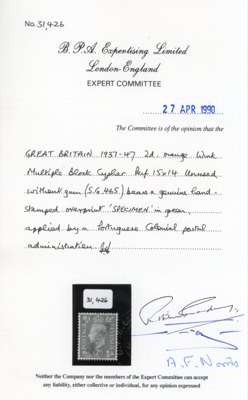 No. 31,426
B. P. A. Expertising Limited
London-England
EXPERT COMMITTEE
27 APR 1990
The Committee is of the opinion that the
GREAT BRITAIN 1937-47 2d. orange Wmk
Multiple Block Cypher Perf. 15x14 Unused
without gum (S.G. 465) bears a genuine hand-
stamped overprint 'SPECIMEN' in green,
applied by a Portuguese Colonial postal
administration.
31,426
A. F. Norris
Neither the Company nor the members of the Expert Committee can accept
any liability, either collective or individual, for any opinion expressed